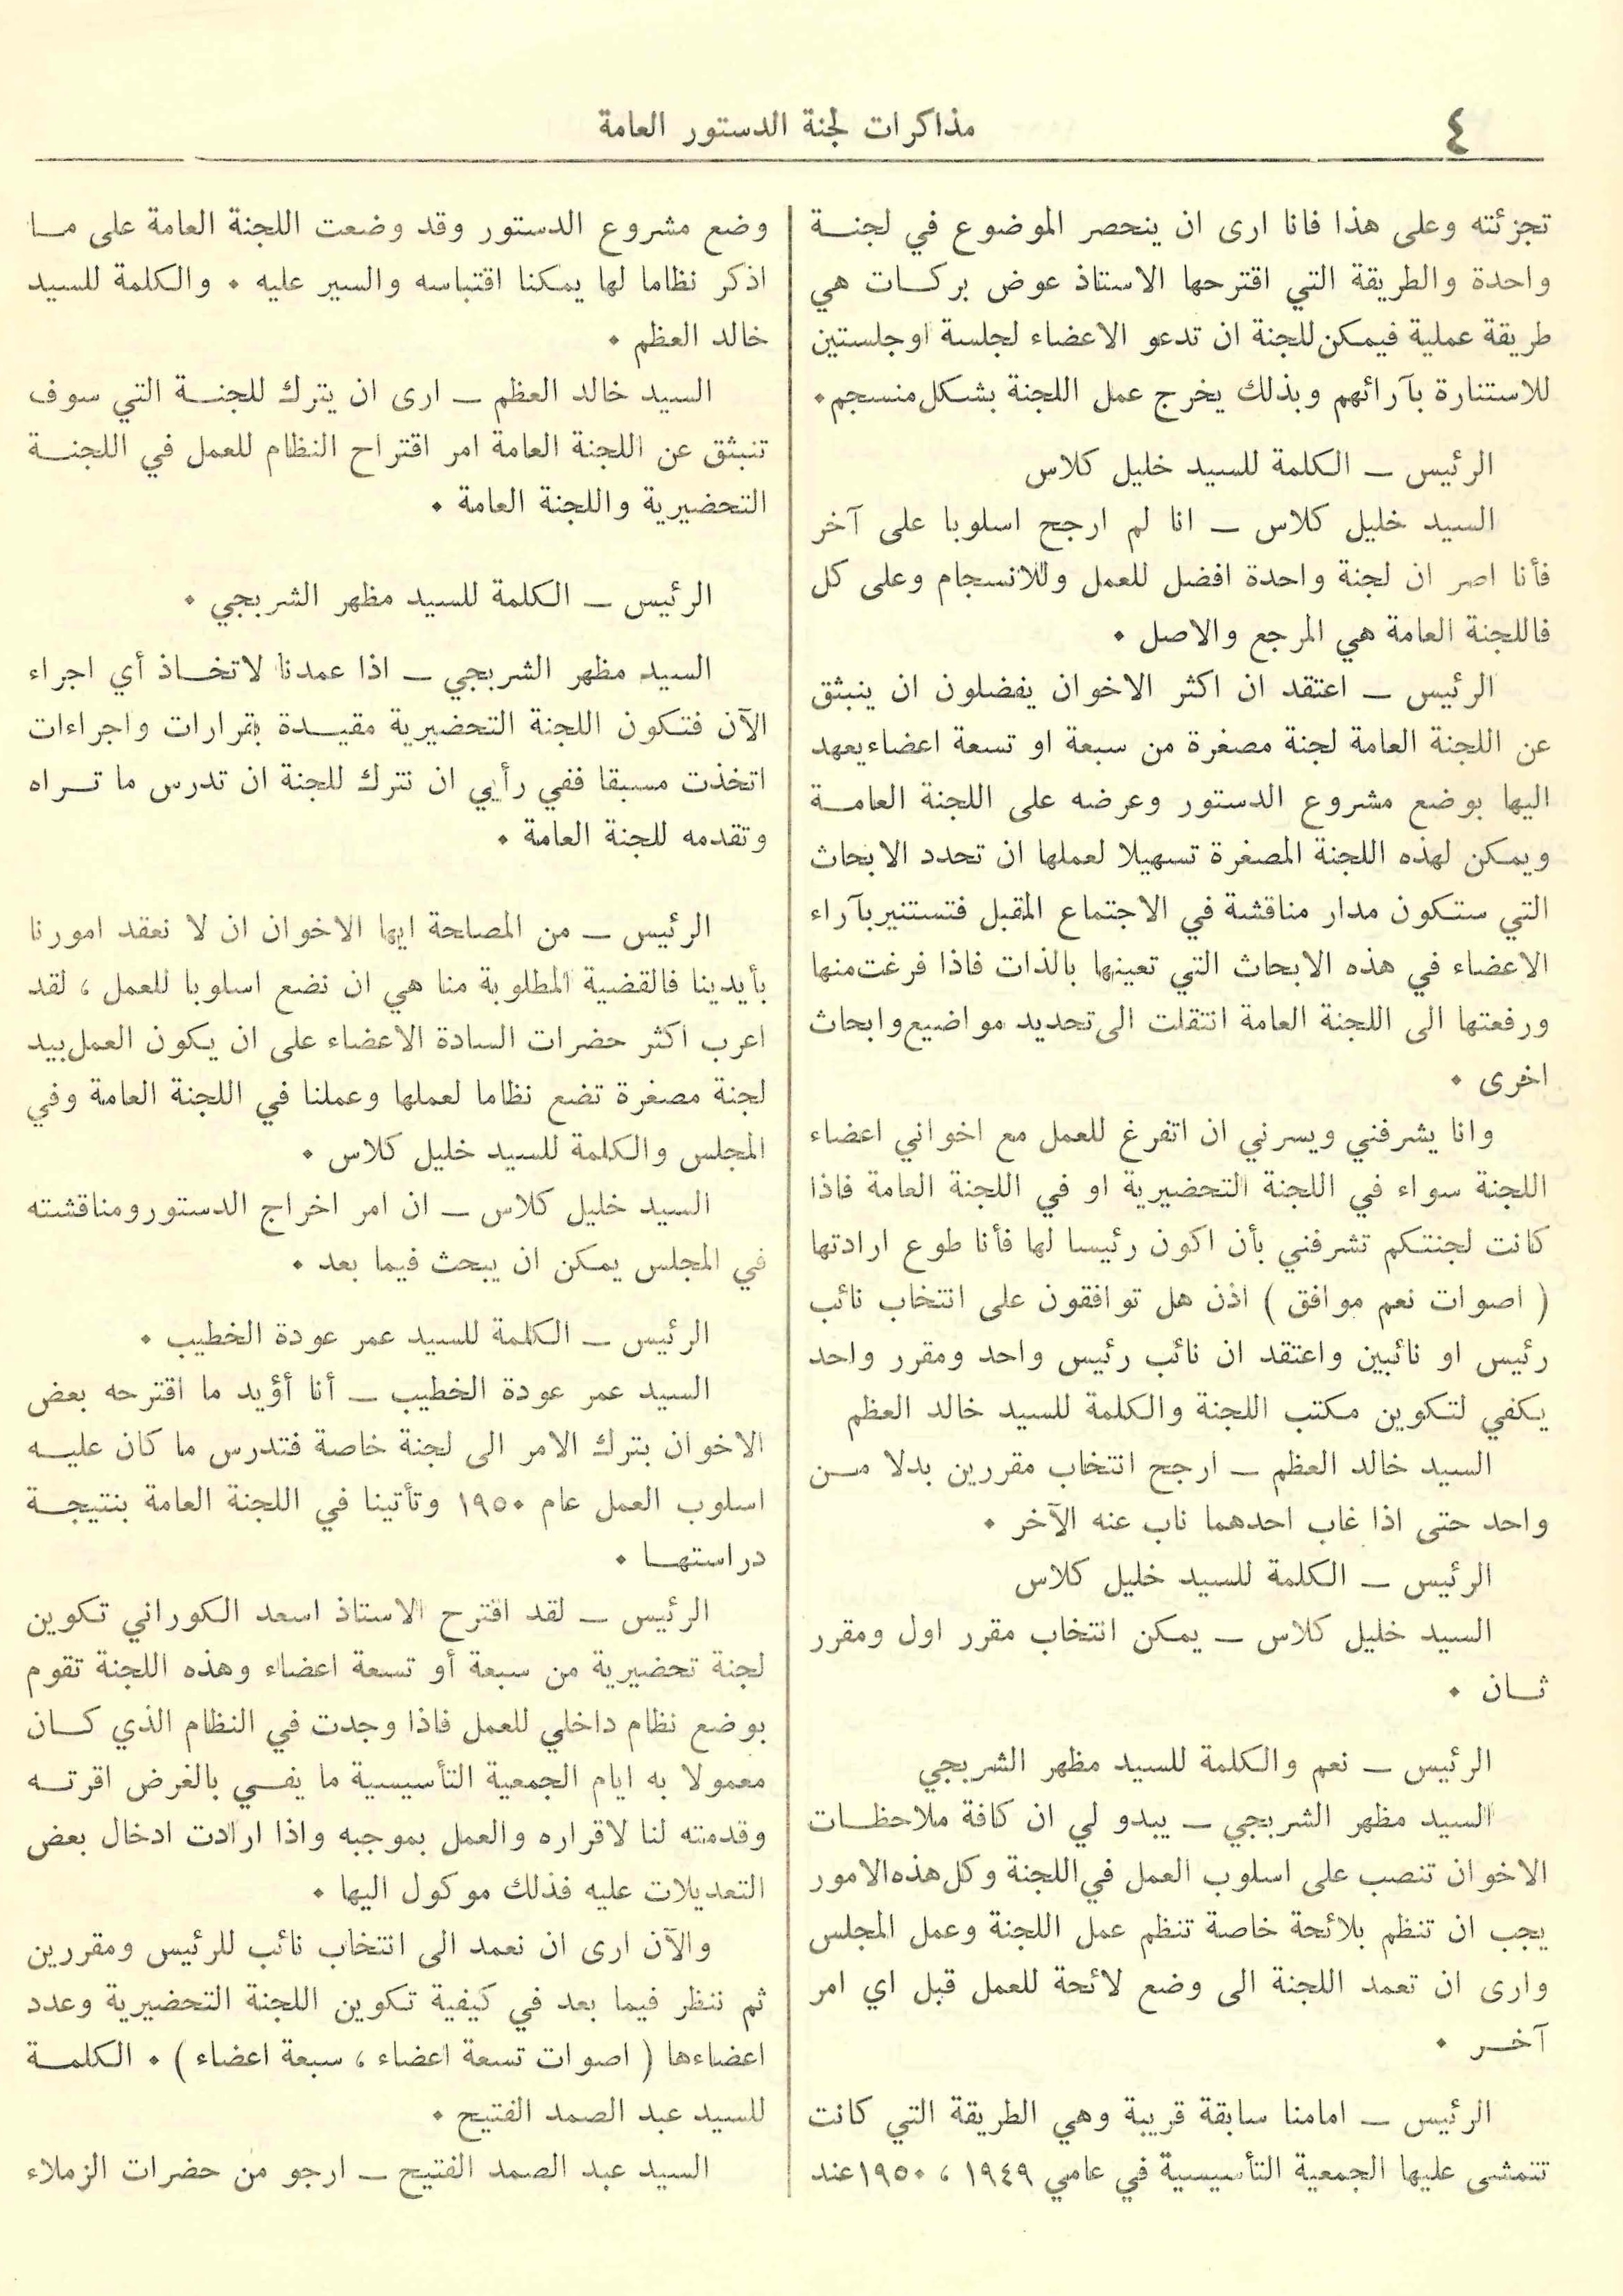 ٤
مذاكرات لجنة الدستور العامة
تجزئته وعلى هذا فانا ارى ان ينحصر الموضوع في لجنــة
واحدة والطريقة التي اقترحها الاستاذ عوض بركــات هي
طريقة عملية فيمكن للجنة ان تدعو الاعضاء لجلسة اوجلستين
للاستنارة بآرائهم وبذلك يخرج عمل اللجنة بشكل منسجم ٠
الرئيس ــ الكلمة للسيد خليل كلاس
السيد خليل كلاس ــ انا لم ارجح اسلوبا على آخر
فأنا اصر ان لجنة واحدة افضل للعمل وللانسجام وعلى كل
فاللجنة العامة هي المرجع والاصل ٠
الرئيس ــ اعتقد ان اكثر الاخوان يفضلون ان ينبثق
عن اللجنة العامة لجنة مصغرة من سبعة او تسعة اعضاء يعهد
اليها بوضع مشروع الدستور وعرضه على اللجنة العامــة
ويمكن لهذه اللجنة المصغرة تسهيلا لعملها ان تحدد الابحاث
التي ستكون مدار مناقشة في الاجتماع المقبل فتستنير بآراء
الاعضاء في هذه الابحاث التي تعينها بالذات فاذا فرغت منها
ورفعتها الى اللجنة العامة انتقلت الى تحديد مواضيع وابحاث
اخرى ٠
وانا يشرفني ويسرني ان اتفرغ للعمل مع اخواني اعضاء
اللجنة سواء في اللجنة التحضيرية او في اللجنة العامة فاذا
كانت لجنتكم تشرفني بأن اكون رئيسا لها فأنا طوع ارادتها
( اصوات نعم موافق ) اذن هل توافقون على انتخاب نائب
رئيس او نائبين واعتقد ان نائب رئيس واحد ومقرر واحد
يكفي لتكوين مكتب اللجنة والكلمة للسيد خالد العظم
السيد خالد العظم ــ ارجح انتخاب مقررين بدلا مــن
واحد حتى اذا غاب احدهما ناب عنه الآخر ٠
الرئيس ــ الكلمة للسيد خليل كلاس
السيد خليل كلاس ــ يمكن انتخاب مقرر اول ومقرر
ثــان ٠
الرئيس ــ نعم والكلمة للسيد مظهر الشربجي
السيد مظهر الشربجي ــ يبدو لي ان كافة ملاحظــات
الاخوان تنصب على اسلوب العمل في اللجنة وكل هذه الامور
يجب ان تنظم بلائحة خاصة تنظم عمل اللجنة وعمل المجلس
وارى ان تعمد اللجنة الى وضع لائحة للعمل قبل اي امر
آخــر ٠
الرئيس ــ امامنا سابقة قريبة وهي الطريقة التي كانت
تتمشى عليها الجمعية التأسيسية في عامي ١٩٤٩ ، ١٩٥٠ عند
وضع مشروع الدستور وقد وضعت اللجنة العامة على مــا
اذكر نظاما لها يمكنا اقتباسه والسير عليه ٠ والكلمة للسيد
خالد العظم ٠
السيد خالد العظم ــ ارى ان يترك للجنــة التي سوف
تنبثق عن اللجنة العامة امر اقتراح النظام للعمل في اللجنــة
التحضيرية واللجنة العامة ٠
الرئيس ــ الكلمة للسيد مظهر الشربجي ٠
السيد مظهر الشربجي ــ اذا عمدنا لاتخــاذ أي اجراء
الآن فتكون اللجنة التحضيرية مقيــدة بقرارات واجراءات
اتخذت مسبقا ففي رأيي ان نترك للجنة ان تدرس ما تــراه
وتقدمه للجنة العامة ٠
الرئيس ــ من المصلحة ايها الاخوان ان لا نعقد امورنا
بأيدينا فالقضية المطلوبة منا هي ان نضع اسلوبا للعمل ، لقد
اعرب اكثر حضرات السادة الاعضاء على ان يكون العمل بيد
لجنة مصغرة تضع نظاما لعملها وعملنا في اللجنة العامة وفي
المجلس والكلمة للسيد خليل كلاس ٠
السيد خليل كلاس ــ ان امر اخراج الدستور ومناقشته
في المجلس يمكن ان يبحث فيما بعد ٠
الرئيس ــ الكلمة للسيد عمر عودة الخطيب ٠
السيد عمر عودة الخطيب ــ أنا أؤيد ما اقترحه بعض
الاخوان بترك الامر الى لجنة خاصة فتدرس ما كان عليــه
اسلوب العمل عام ١٩٥٠ وتأتينا في اللجنة العامة بنتيجــة
دراستهــا ٠
الرئيس ــ لقد اقترح الاستاذ اسعد الكوراني تكوين
لجنة تحضيرية من سبعة أو تسعة اعضاء وهذه اللجنة تقوم
بوضع نظام داخلي للعمل فاذا وجدت في النظام الذي كــان
معمولا به ايام الجمعية التأسيسية ما يفــي بالغرض اقرتــه
وقدمته لنا لاقراره والعمل بموجبه واذا ارادت ادخال بعض
التعديلات عليه فذلك موكول اليها ٠
والآن ارى ان نعمد الى انتخاب نائب للرئيس ومقررين
ثم ننظر فيما بعد في كيفية تكوين اللجنة التحضيرية وعدد
اعضاءها ( اصوات تسعة اعضاء ، سبعة اعضاء ) ٠ الكلمــة
للسيد عبد الصمد الفتيح ٠
السيد عبد الصمد الفتيح ــ ارجو من حضرات الزملاء